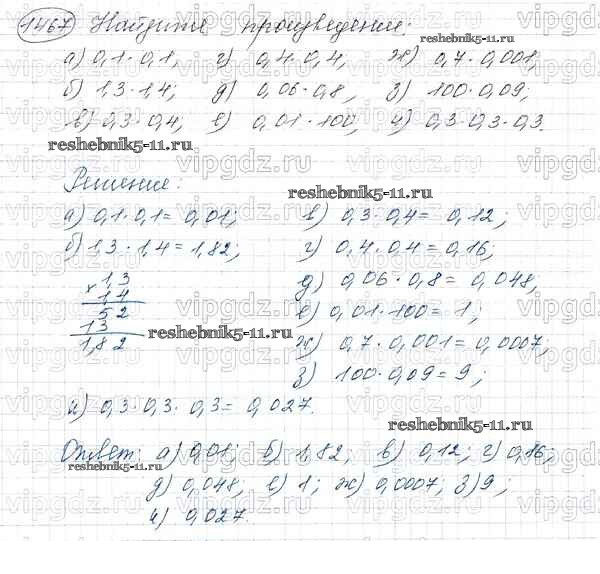 1467 Найдите произведение:
reshebnik5-11.ru
а) 0,1 · 0,1; г) 0,4 · 0,4, ж) 0,7 · 0,001;
б) 1,3 · 1,4; д) 0,06 · 0,8, з) 100 · 0,09;
в) 0,3 · 0,4; е) 0,01 · 100, и) 0,3 · 0,3 · 0,3.
reshebnik5-11.ru
Решение:
reshebnik5-11.ru
а) 0,1 · 0,1 = 0,01; в) 0,3 · 0,4 = 0,12;
б) 1,3 · 1,4 = 1,82; г) 0,4 · 0,4 = 0,16;
× 1,3 д) 0,06 · 0,8 = 0,048;
1,4
52 е) 0,01 · 100 = 1;
13
reshebnik5-11.ru
1,82 ж) 0,7 · 0,001 = 0,0007;
з) 100 · 0,09 = 9;
и) 0,3 · 0,3 · 0,3 = 0,027.
reshebnik5-11.ru
Ответ: а) 0,01; б) 1,82, в) 0,12; г) 0,16;
reshebnik5-11.ru
д) 0,048, е) 1; ж) 0,0007, з) 9;
и) 0,027.
vipgdz.ru